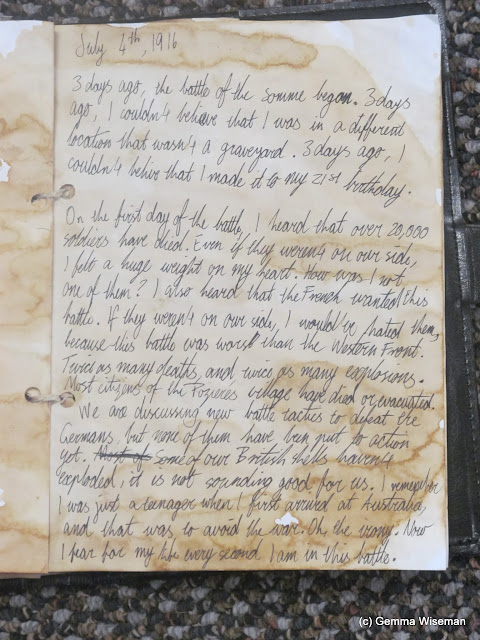 July 4th, 1916
3 days ago, the battle of the somme began. 3 days
ago, I couldn't believe that I was in a different
location that wasn't a graveyard. 3 days ago, I
couldn't belive that I made it to my 21st birthday.
On the first day of the battle, I heard that over 20,000
soldiers have died. Even if they weren't on our side,
I felt a huge weight on my heart. How was I not
one of them? I also heard that the French wanted this
battle. If they weren't on our side, I would've hated them,
because this battle was worse than the Western Front.
Twice as many deaths, and twice as many explosions.
Most citizens of the Pozieres village have died or evacuated.
We are discussing new battle tactics to defeat the
Germans, but none of them have been put to action
yet. Most of Some of our British shells haven't
exploded, it is not sounding good for us. I remember
I was just a teenager when I first arrived at Australia,
and that was to avoid the war. Oh the irony. Now
I fear for my life every second I am in this battle.
(c) Gemma Wiseman